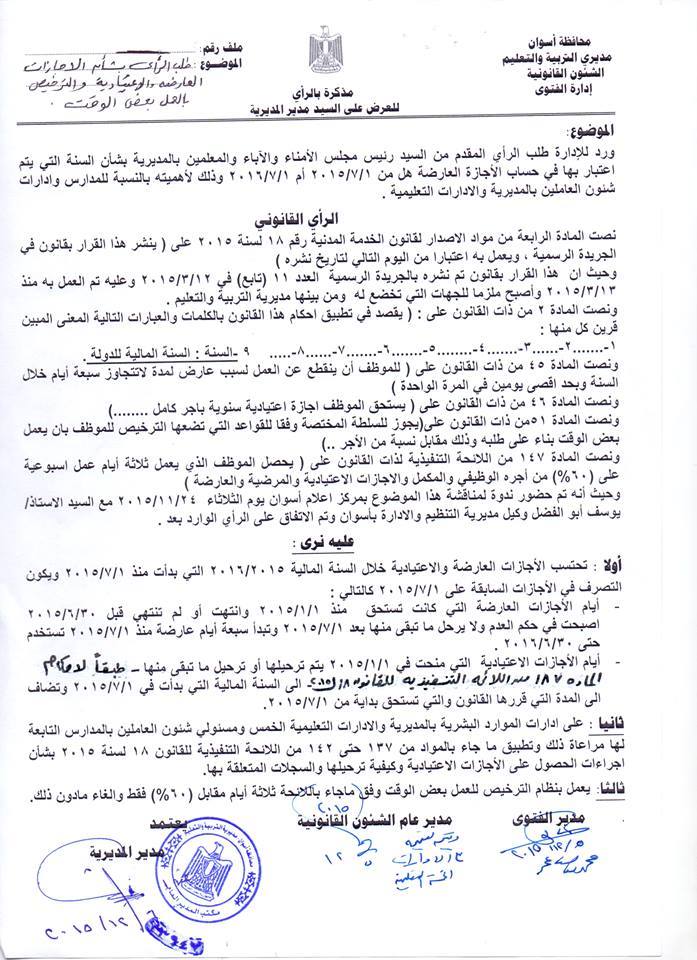 محافظة أسوان
مديرى التربية والتعليم
الشئون القانونية
إدارة الفتوى
ملف رقم:
الموضوع: طلب الرأى بشأن الاجازات
العارضه والاعتيادية والترخيص
بالعمل بعض الوقت .
مذكرة بالرأي
للعرض على السيد مدير المديرية
الموضوع:
ورد للإدارة طلب الرأي المقدم من السيد رئيس مجلس الأمناء والآباء والمعلمين بالمديرية بشأن السنة التي يتم
اعتبار بها في حساب الأجازة العارضة هل من ٢٠١٥/٧/١ أم ٢٠١٦/٧/١ وذلك لأهميته بالنسبة للمدارس وإدارات
شئون العاملين بالمديرية والادارات التعليمية .
الرأي القانوني
نصت المادة الرابعة من مواد الاصدار لقانون الخدمة المدنية رقم ١٨ لسنة ٢٠١٥ على ( ينشر هذا القرار بقانون في
الجريدة الرسمية ، ويعمل به اعتبارا من اليوم التالي لتاريخ نشره )
وحيث ان هذا القرار بقانون تم نشره بالجريدة الرسمية العدد ١١ (تابع) في ٢٠١٥/٣/١٢ وعليه تم العمل به منذ
٢٠١٥/٣/١٣ وأصبح ملزما للجهات التي تخضع له ومن بينها مديرية التربية والتعليم .
ونصت المادة ٢ من ذات القانون على : ( يقصد في تطبيق احكام هذا القانون بالكلمات والعبارات التالية المعنى المبين
قرين كل منها :
١-......٢-......٣-.......٤-........٥-.......٦-.......٧-......٨-..... ٩ -السنة : السنة المالية للدولة .
ونصت المادة ٤٥ من ذات القانون على ( للموظف أن ينقطع عن العمل لسبب عارض لمدة لاتتجاوز سبعة أيام خلال
السنة وبحد اقصى يومين في المرة الواحدة )
ونصت المادة ٤٦ من ذات القانون على ( يستحق الموظف اجازة اعتيادية سنوية باجر كامل ........)
ونصت المادة ٥١من ذات القانون على(يجوز للسلطة المختصة وفقا للقواعد التي تضعها الترخيص للموظف بان يعمل
بعض الوقت بناء على طلبه وذلك مقابل نسبة من الأجر ..)
ونصت المادة ١٤٧ من اللائحة التنفيذية لذات القانون على ( يحصل الموظف الذي يعمل ثلاثة أيام عمل اسبوعية
على (٦٠%) من أجره الوظيفي والمكمل والاجازات الاعتيادية والمرضية والعارضة )
وحيث أنه تم حضور ندوة لمناقشة هذا الموضوع بمركز اعلام أسوان يوم الثلاثاء ٢٠١٥/١١/٢٤ مع السيد الاستاذ/
يوسف أبو الفضل وكيل مديرية التنظيم والادارة بأسوان وتم الاتفاق على الرأي الوارد بعد .
عليه نرى :
أولا : تحتسب الأجازات العارضة والاعتيادية خلال السنة المالية ٢٠١٦/٢٠١٥ التي بدأت منذ ٢٠١٥/٧/١ ويكون
التصرف في الأجازات السابقة على ٢٠١٥/٧/١ كالتالي :
- أيام الأجازات العارضة التي كانت تستحق منذ ٢٠١٥/١/١ وانتهت أو لم تنتهي قبل ٢٠١٥/٦/٣٠
اصبحت في حكم العدم ولا يرحل ما تبقى منها بعد ٢٠١٥/٧/١ وتبدأ سبعة أيام عارضة منذ ٢٠١٥/٧/١ تستخدم
حتى ٢٠١٦/٦/٣٠ .
- أيام الأجازات الاعتيادية التي منحت في ٢٠١٥/١/١ يتم ترحيلها أو ترحيل ما تبقى منها – طبقاً لاحكام
الماده ١٨٧ من اللائحه التنفيذيه للقانون ١٨/٢٠١٥ الى السنة المالية التي بدأت في ٢٠١٥/٧/١ وتضاف
الى المدة التي قررها القانون والتي تستحق بداية من ٢٠١٥/٧/١.
ثانيا : على ادارات الموارد البشرية بالمديرية والادارات التعليمية الخمس ومسئولي شئون العاملين بالمدارس التابعة
لها مراعاة ذلك وتطبيق ما جاء بالمواد من ١٣٧ حتى ١٤٢ من اللائحة التنفيذية للقانون ١٨ لسنة ٢٠١٥ بشأن
اجراءات الحصول على الأجازات الاعتيادية وكيفية ترحيلها والسجلات المتعلقة بها.
ثالثا: يعمل بنظام الترخيص للعمل بعض الوقت وفق ماجاء باللائحة ثلاثة أيام مقابل (٦٠%) فقط والغاء مادون ذلك.
مدير الفتوى
مدير عام الشئون القانونية
يعتمد
مدير المديرية
٢٠١٥
١٢
مكتب المدير العام
٢٠١٥/١٢/